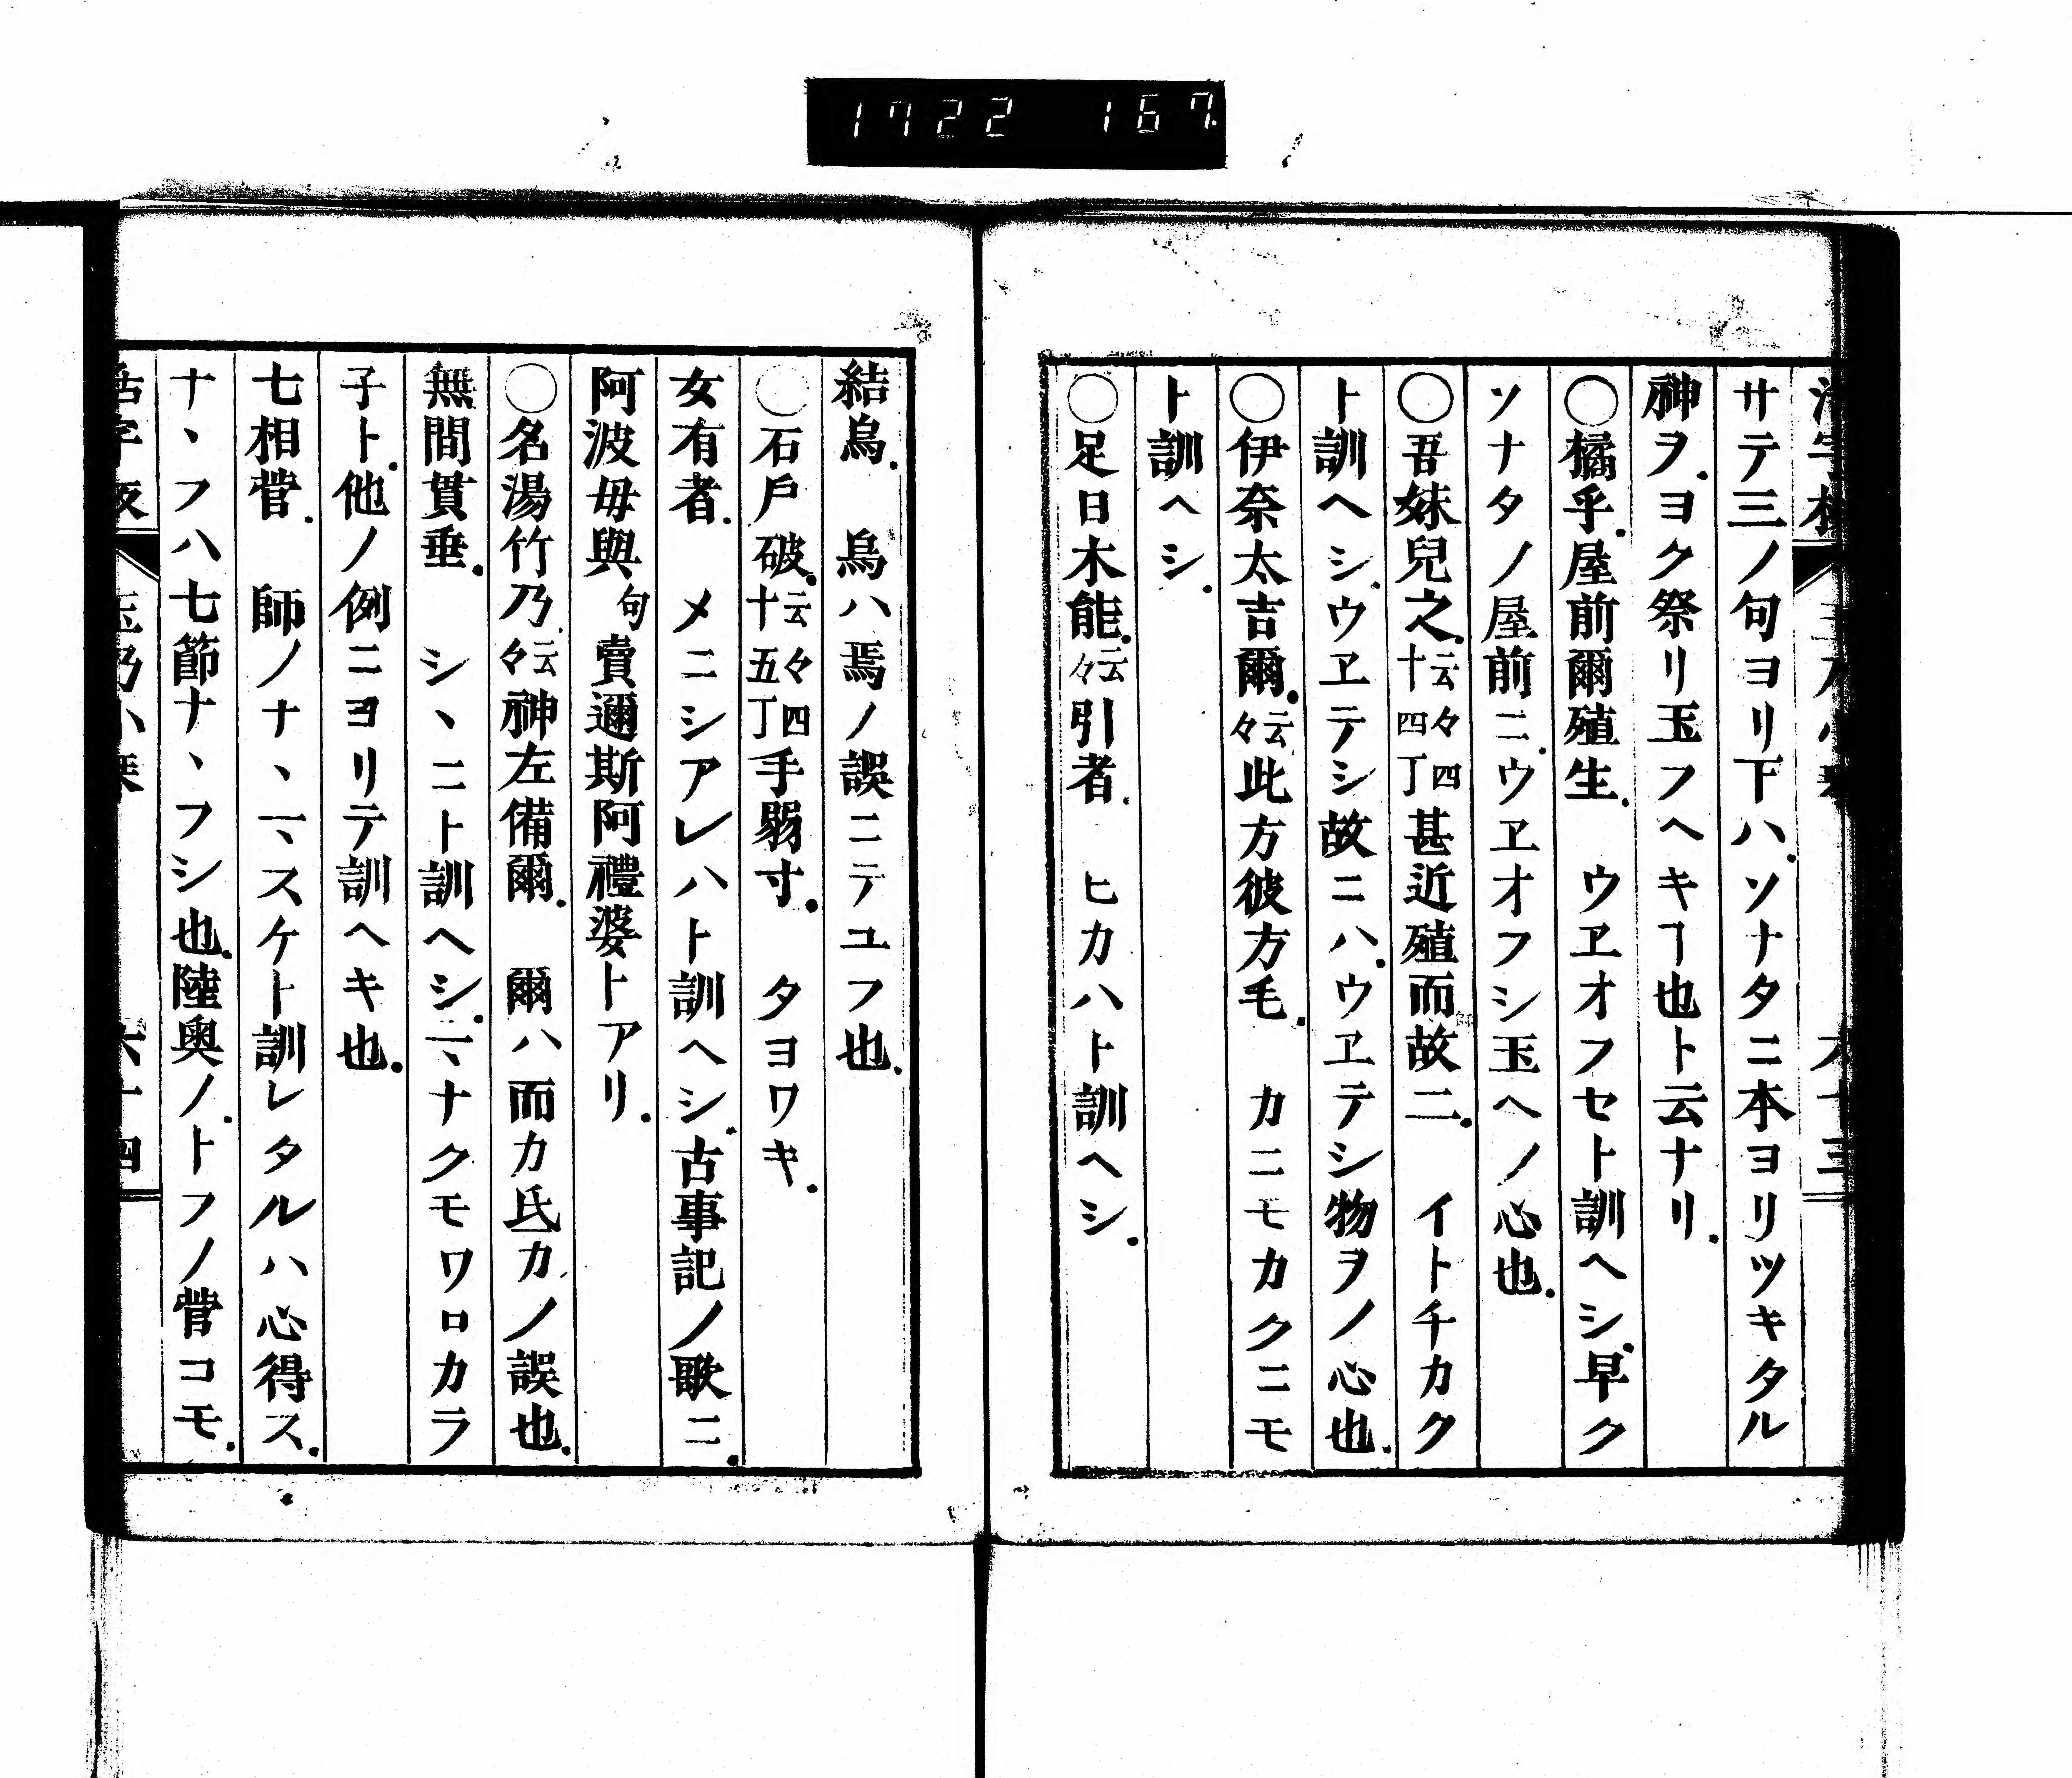 1722 167
サテ三ノ句ヨリ下ハ.ソナタニ本ヨリツキタル
神ヲ.ヨク祭リ玉フヘキヿ也ト云ナリ.
○橘乎.屋前爾殖生.　ウヱオフセト訓ヘシ.早ク
ソナタノ屋前ニ.ウヱオフシ玉ヘノ心也.
○吾妹兒之.云々四十四丁甚近殖而故二.　イトチカク
ト訓ヘシ.ウヱテシ故ニハ.ウヱテシ物ヲノ心也.
○伊奈太吉爾.云々此方彼方毛.　カニモカクニモ
ト訓ヘシ.
○足日木能.云々引者.　ヒカハト訓ヘシ.
結烏.　烏ハ焉ノ誤ニテユフ也.
○石戸破.云々四十五丁手弱寸.　タヨワキ.
女有者.　メニシアレハト訓ヘシ.古事記ノ歌ニ.
阿波毋與句賣邇斯阿禮婆トアリ.
○名湯竹乃.云々神左備爾.　爾ハ而カ氐カノ誤也.
無間貫垂.　シヽニト訓ヘシ.ニヽナクモワロカラ
子ト.他ノ例ニヨリテ訓ヘキ也.
七相菅.　師ノナヽヽスケト訓レタルハ心得ス.
ナヽフハ七節ナヽフシ也.陸奥ノ.トフノ菅コモ.
活字板　玉乃小琴　六十四